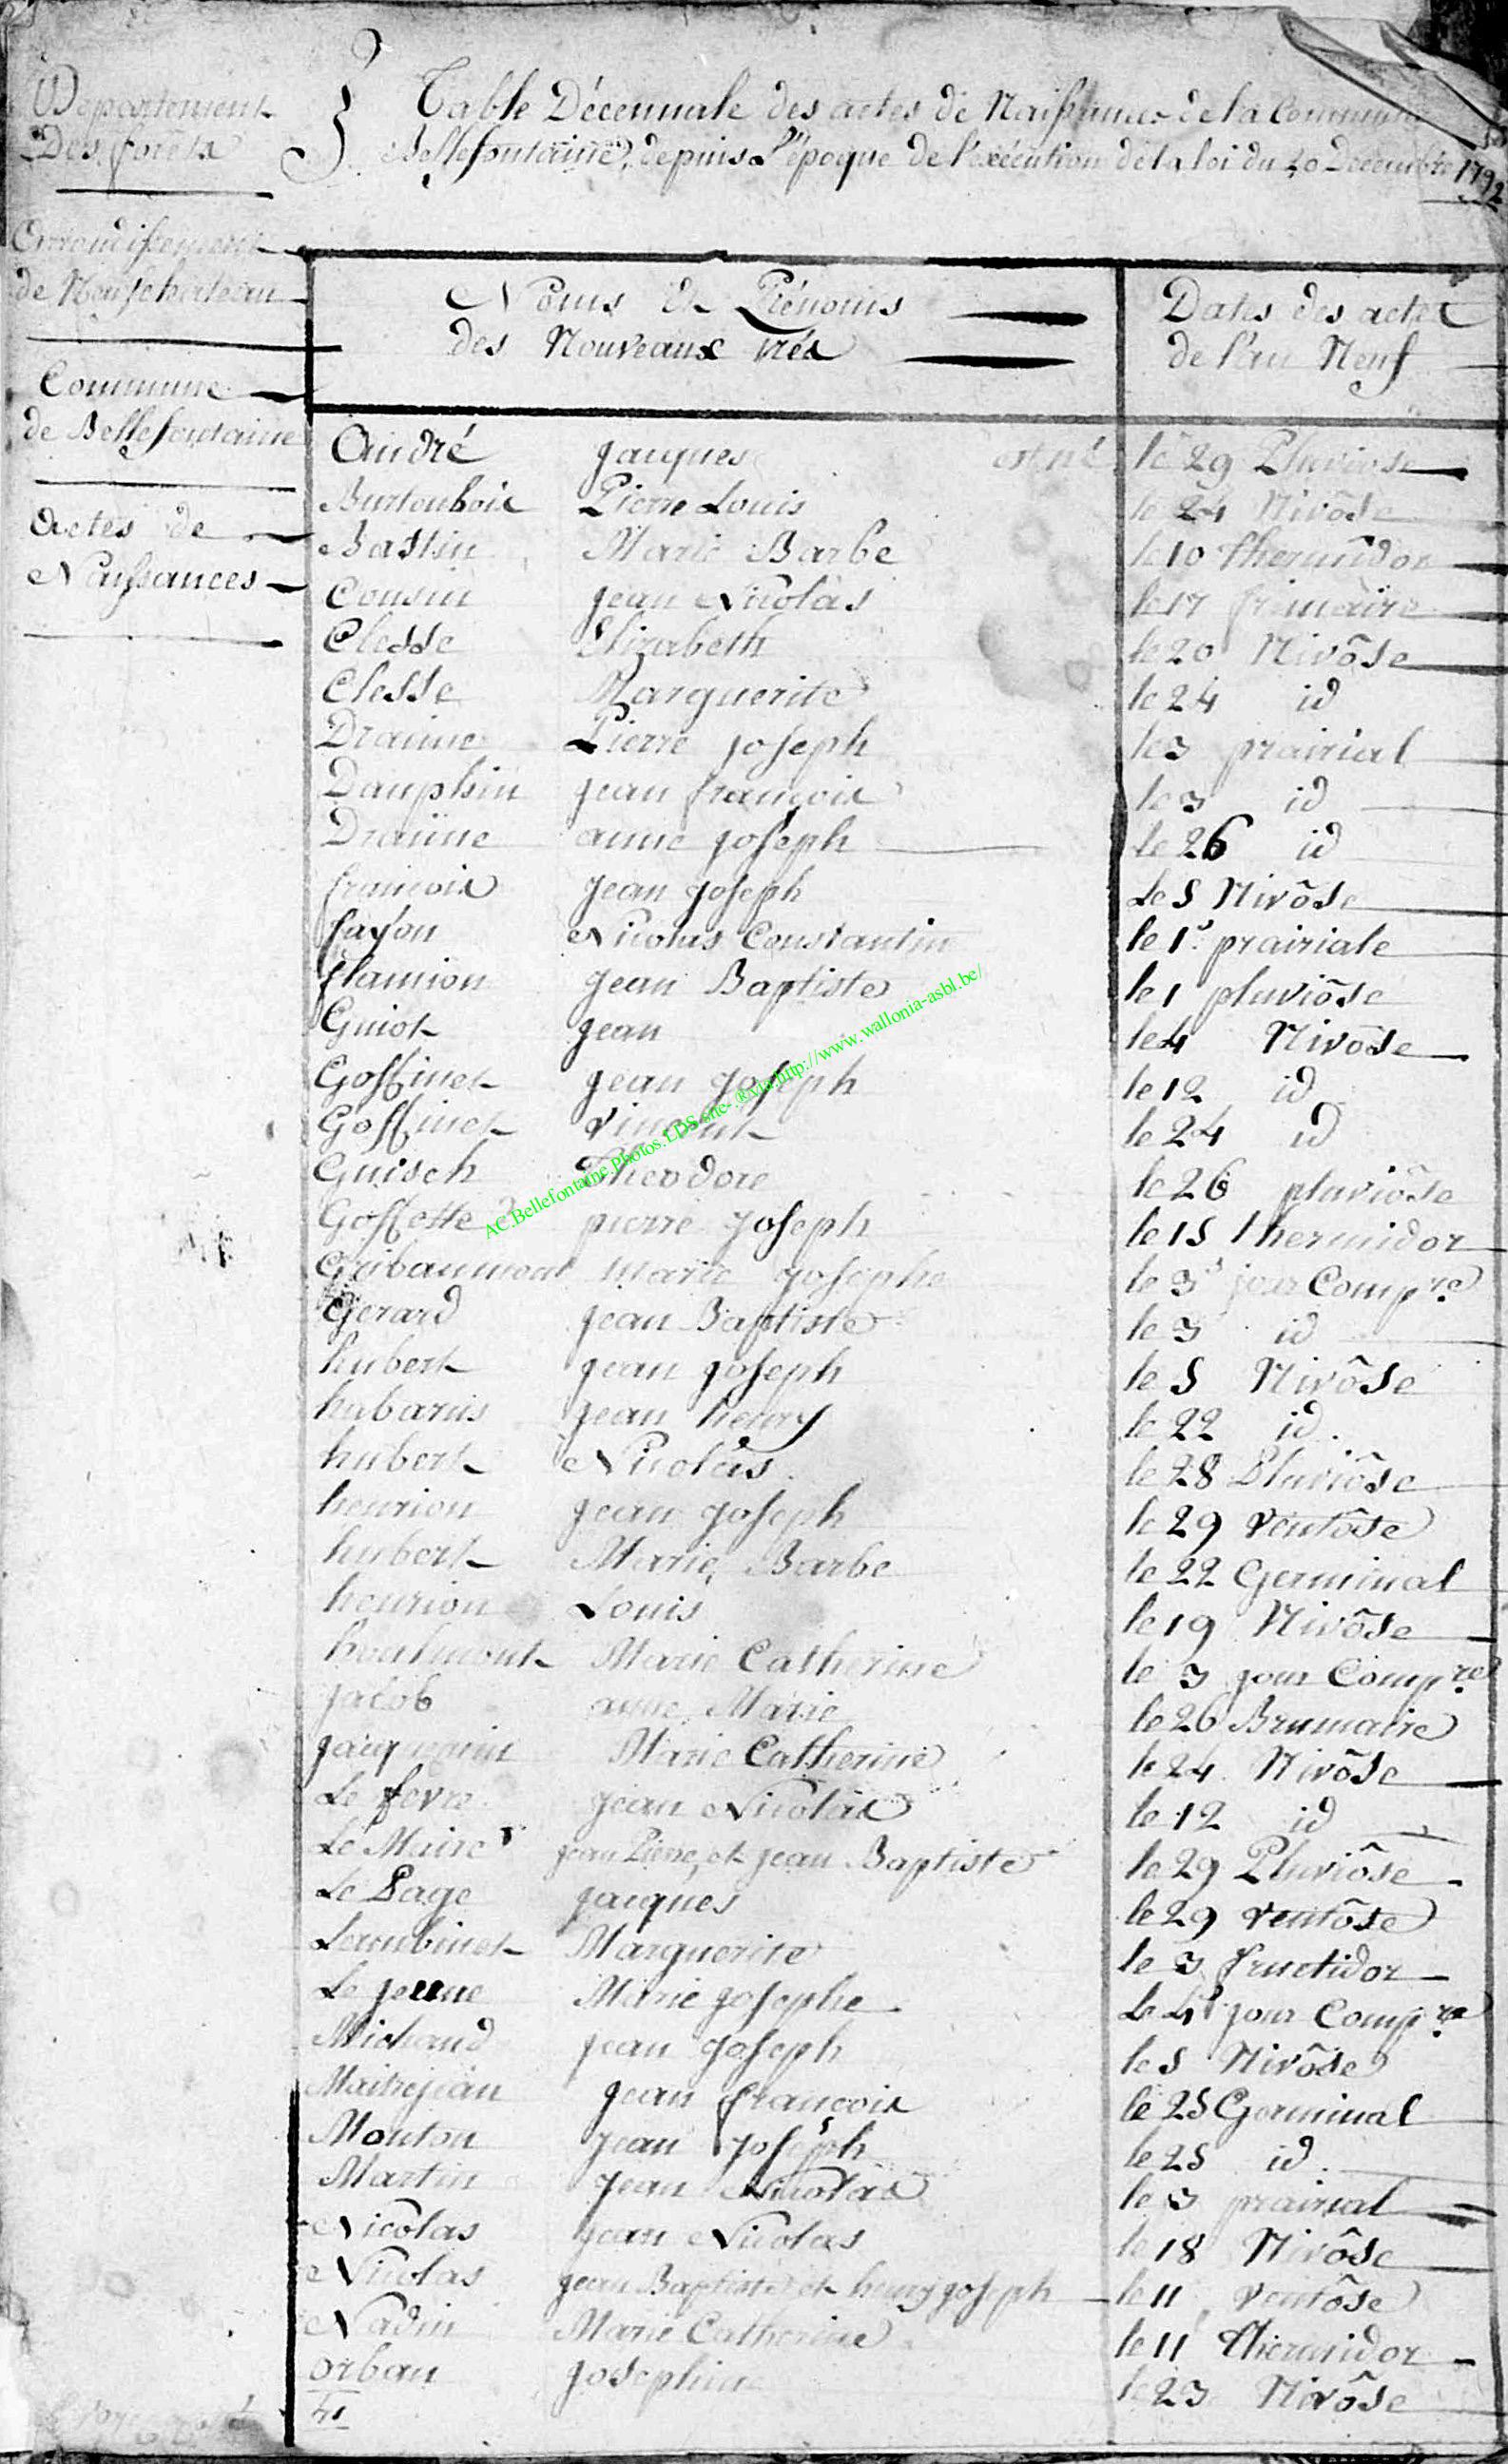 Departement
Des forêts
Table Décennale des actes de Naissances de la Commune
Bellefontaine, depuis l'époque de l'exécution de la loi du 20 Decembre 1792
Arrondissement
de Neufchateau
Commune
de Bellefontaine
Actes de
Naissances
Noms et Prénoms
des Nouveaux nés
Dates des actes
de l'an Neuf
André Jacques est né le 29 Pluviose
Burtonboix Pierre Louis le 24 Nivôse
Bastin Marie Barbe le 10 thermidor
Cousin jean Nicolas le 17 frimaire
Clesse Elizabeth le 20 Nivôse
Clesse Marguerite le 24 id
Draime Pierre joseph le 3 prairial
Dauphin jean françois le 3 id
Draime anne joseph le 26 id
françois jean joseph Le 5 Nivôse
fayon Nicolas Constantin le 1r prairiale
flamion jean Baptiste le 1 pluviôse
Guiot jean le 4 Nivôse
Goffinet jean joseph le 12 id
Goffinet Vincent le 24 id
Guisch Theodore le 26 pluviôse
Goffette pierre joseph le 15 thermidor
Gribaumont Marie josephe le 3e jour Compre
Gerard jean Baptiste le 3 id
hubert jean joseph le 5 Nivôse
hubarus jean henry le 22 id
hubert Nicolas le 28 Pluviôse
henrion jean joseph le 29 Ventôse
hubert Marie Barbe le 22 Germinal
henrion Louis le 19 Nivôse
houlmont Marie Catherine le 3 jour Compre
jacob anne Marie le 26 Brumaire
jacquemin Marie Catherine le 24 Nivôse
Le fevre jean Nicolas le 12 id
Le Maire jean Pierre et jean Baptiste le 29 Pluviôse
Le Page jacques le 29 Ventôse
Lambinet Marguerite le 3 fructidor
Le jeune Marie josephe Le 4e jour Compre
Michaud jean joseph le 5 Nivôse
Maitrejean jean françois le 25 Germinal
Mouton jean joseph le 25 id
Martin jean Nicolas le 3 prairial
Nicolas jean Nicolas le 18 Nivôse
Nicolas jean Baptiste et henry joseph le 11 Ventôse
Nadin Marie Catherine le 11 thermidor
Orban josephine le 23 Nivôse
41
AC.Bellefontaine.Photos.LDS.snc-.®via.http://www.wallonia-asbl.be/